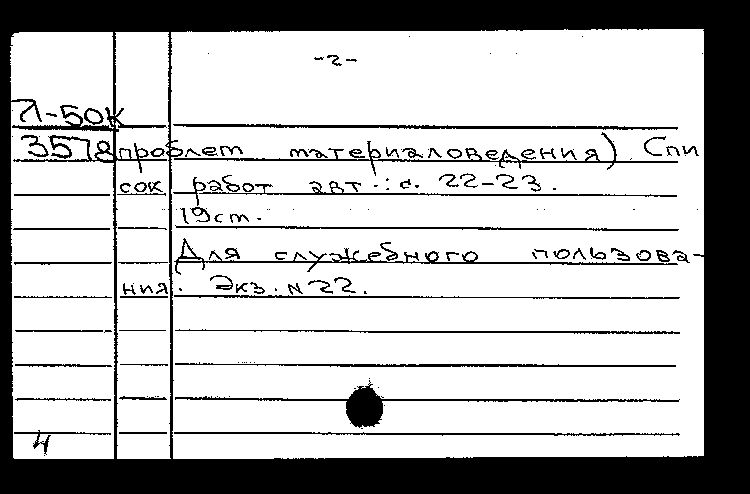 -2-
Л-50К
3578 проблем материаловедения) Спи
сок работ авт.: с. 22-23.
19 ст.
Для служебного пользова-
ния. Экз. N 22.
4